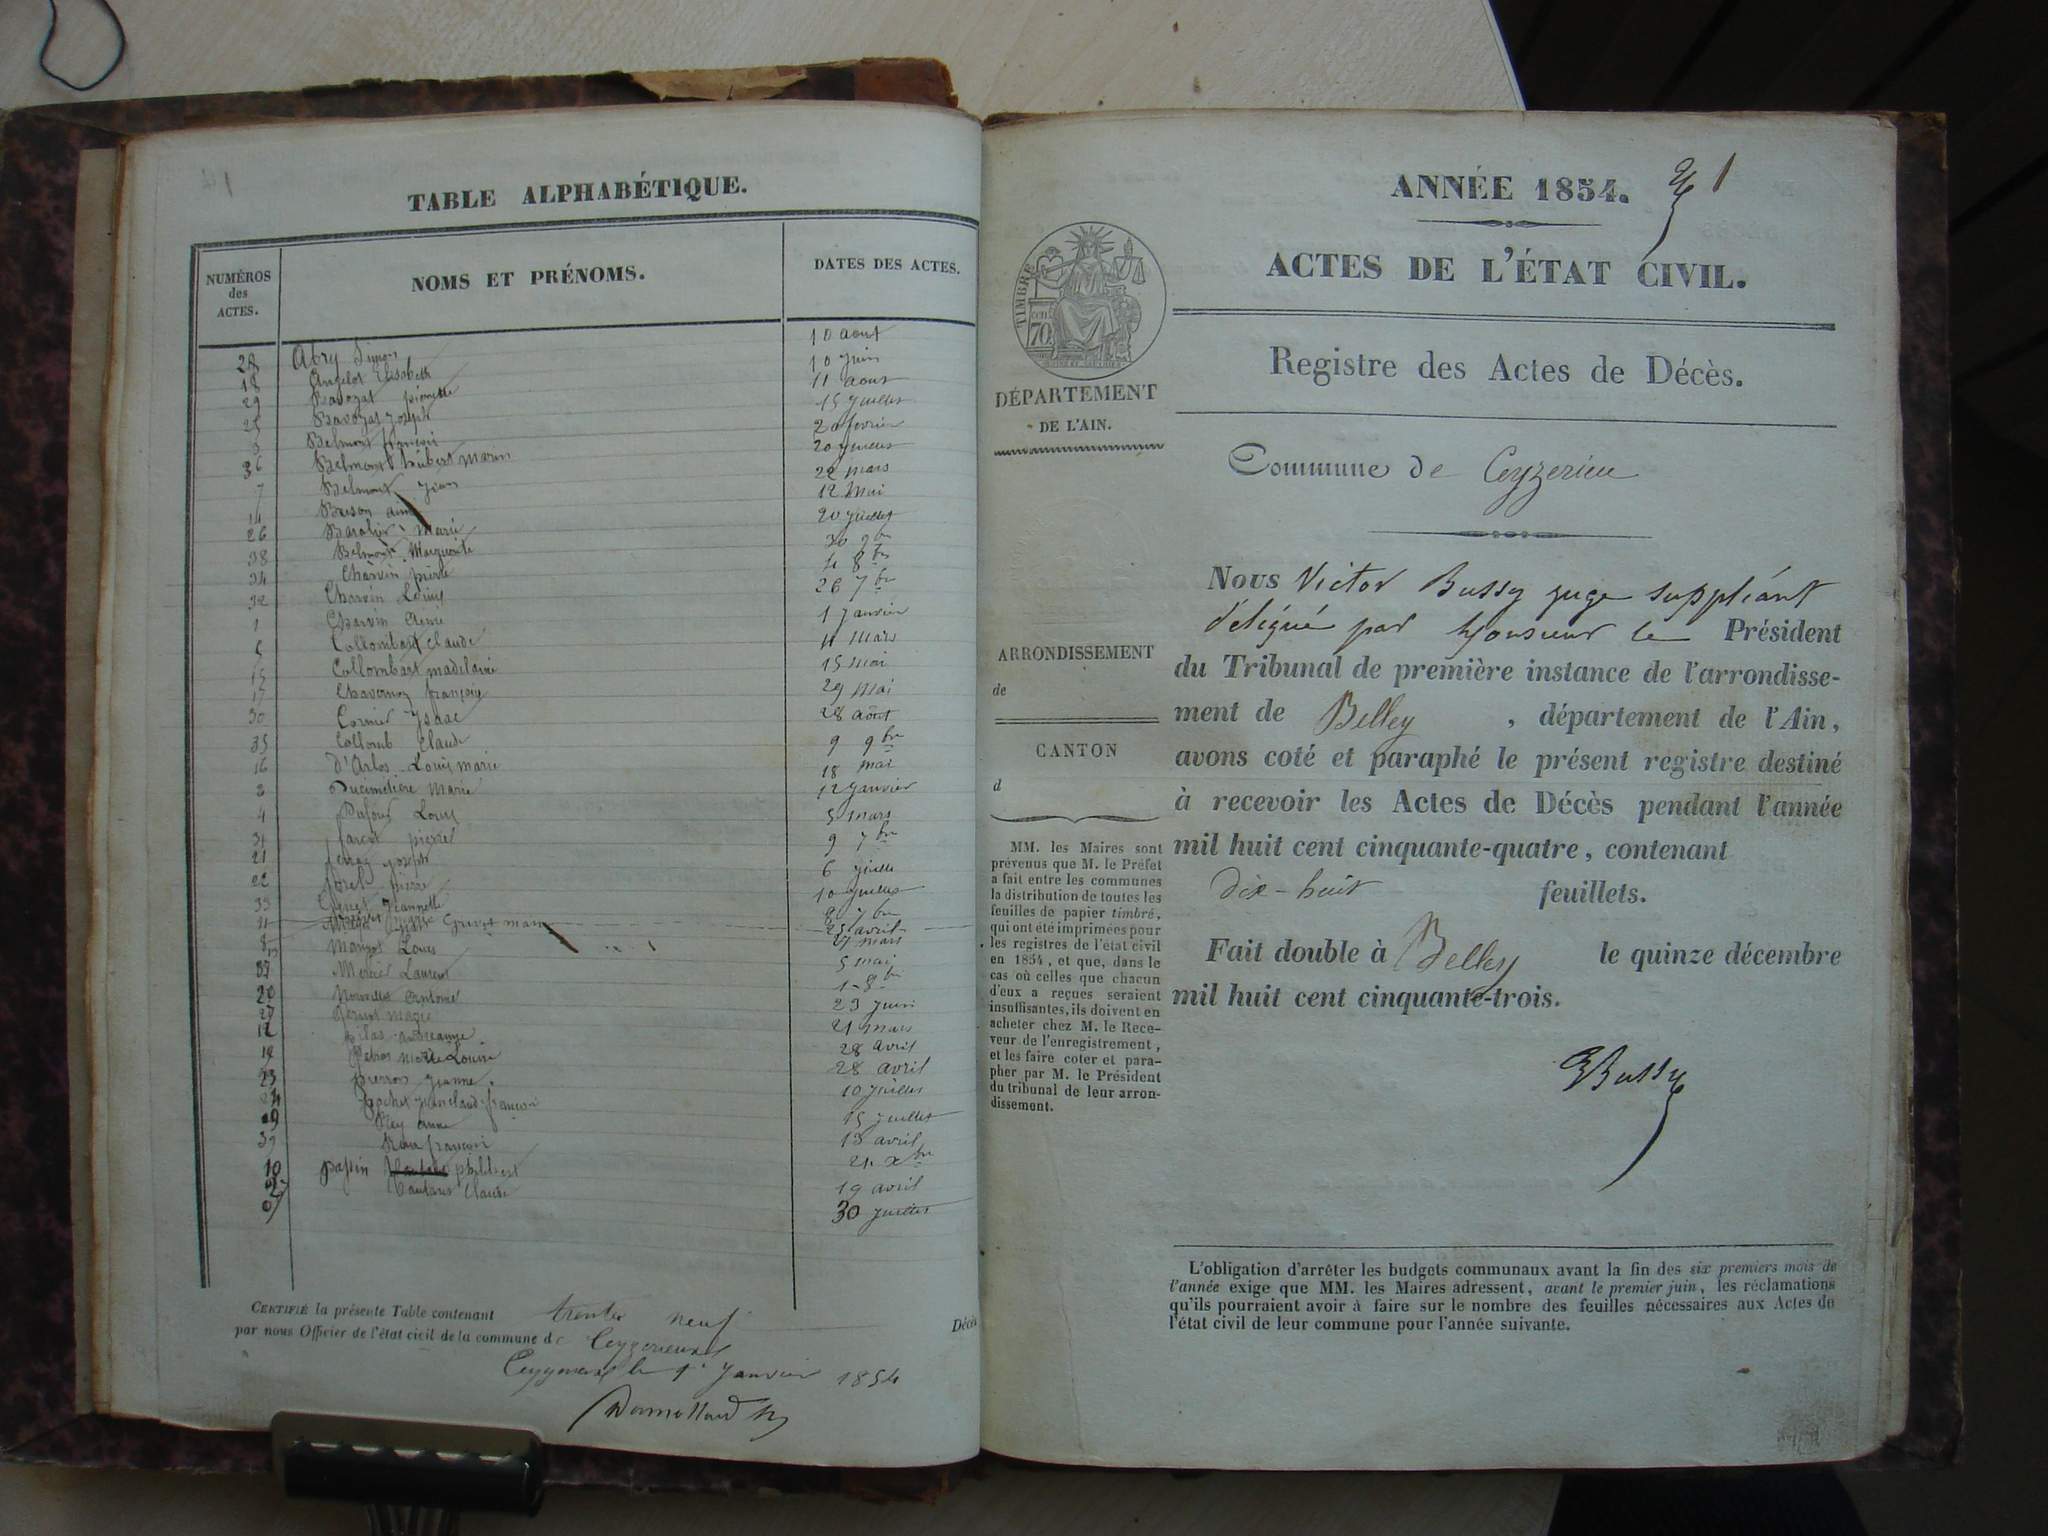 TABLE ALPHABÉTIQUE.
NUMÉROS
des
ACTES.
NOMS ET PRÉNOMS.
DATES DES ACTES.
Abry Simon 10 aout
18 Angelot Elisabeth 10 juin
29 Bavozat pierrette 11 aout
25 Bavozat Joseph 15 juillet
3 Belmont françois 20 fevrier
36 Belmont hubert Marin
7 Belmont Jean 22 mars
14 Buson 12 Mai
26 Marie 20 juillet
38 Belmont Marguerite 9bre
34 Charvin pierre 4 8bre
32 Charvin Louis 26 7bre
1 Charvin 1 Janvier
5 Collombart Claude 4 Mars
15 Collombart madelaine 15 mai
17 Chavornoz françois 29 Mai
30 Cormier Isaac 28 août
35 Collomb Claude 9 9bre
16 D'Arlos Louis marie 18 mai
2 Ducimetière Marie 12 Janvier
4 Dufour Louis 5 mars
31 pierre 9 7bre
21 Joseph 6 juillet
22 pierre 10 juillet
33 Jeannette 8 7bre
11 25 avril
8 Louis 27 mars
13 Mercier Laurent 5 mai
37 Antoine 1 8bre
20 marie 23 juin
27 21 mars
12 Marie Louise 28 avril
19 pierron Jeanne 28 avril
23 françois 10 juillet
24 Rey anne 15 juillet
9 françois 13 avril
39 passin philibert 21 xbre
10 Claude 19 avril
30 juillet
CERTIFIÉ la présente Table contenant trente neuf Décès
par nous Officier de l'état civil de la commune de Ceyzerieux
le 1er Janvier 1854
ANNÉE 1854. 1
ACTES DE L'ÉTAT CIVIL.
TIMBRE
70
DÉPARTEMENT
DE L'AIN.
ARRONDISSEMENT
de
CANTON
d
MM. les Maires sont
prévenus que M. le Préfet
a fait entre les communes
la distribution de toutes les
feuilles de papier timbré,
qui ont été imprimées pour
les registres de l'état civil
en 1854, et que, dans le
cas où celles que chacun
d'eux a reçues seraient
insuffisantes, ils doivent en
acheter chez M. le Rece-
veur de l'enregistrement,
et les faire coter et para-
pher par M. le Président
du tribunal de leur arron-
dissement.
Registre des Actes de Décès.
Commune de Ceyzerieu
Nous Victor Bussy juge suppléant
délégué par Monsieur le Président
du Tribunal de première instance de l'arrondisse-
ment de Belley , département de l'Ain,
avons coté et paraphé le présent registre destiné
à recevoir les Actes de Décès pendant l'année
mil huit cent cinquante-quatre, contenant
dix-huit feuillets.
Fait double à Belley le quinze décembre
mil huit cent cinquante-trois.
Bussy
L'obligation d'arrêter les budgets communaux avant la fin des six premiers mois de
l'année exige que MM. les Maires adressent, avant le premier juin, les réclamations
qu'ils pourraient avoir à faire sur le nombre des feuilles nécessaires aux Actes de
l'état civil de leur commune pour l'année suivante.